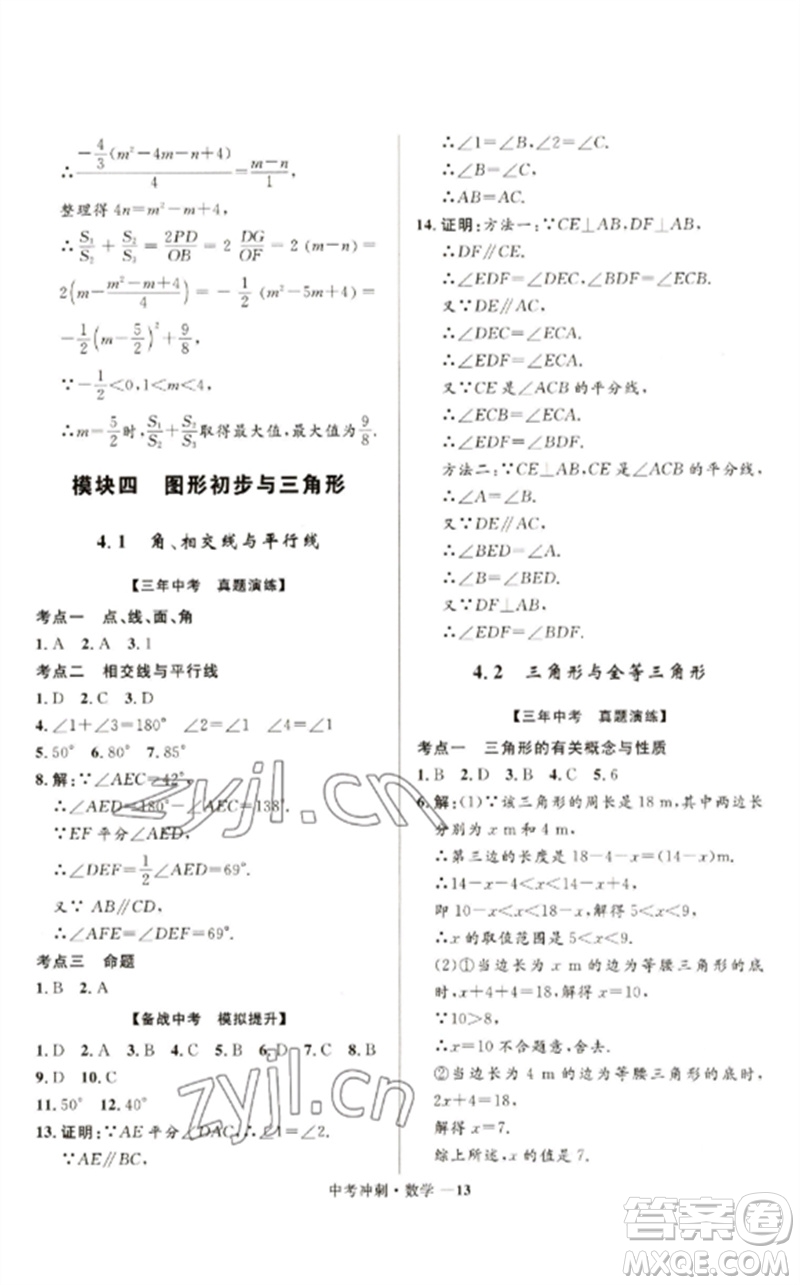 ∴ $\frac{-\frac{4}{3}(m^2-4m-n+4)}{4}=\frac{m-n}{1}$,
整理得 4n=m²-m+4,
∴ $\frac{S_1}{S_2}+\frac{S_2}{S_3}=\frac{2PD}{OB}=2\frac{DG}{OF}=2(m-n)=$
$2\left(m-\frac{m^2-m+4}{4}\right)=-\frac{1}{2}(m^2-5m+4)=$
$-\frac{1}{2}\left(m-\frac{5}{2}\right)^2+\frac{9}{8}$,
∵ $-\frac{1}{2}<0,1<m<4$,
∴ $m=\frac{5}{2}$时,$\frac{S_1}{S_2}+\frac{S_2}{S_3}$取得最大值,最大值为$\frac{9}{8}$.
模块四 图形初步与三角形
4.1 角、相交线与平行线
【三年中考 真题演练】
考点一 点、线、面、角
1. A 2. A 3. 1
考点二 相交线与平行线
1. D 2. C 3. D
4. ∠1+∠3=180° ∠2=∠1 ∠1
5. 50° 6. 80° 7. 90°
8. 解:∵∠AEC=42°,
∴∠AED=180°-∠AEC=138°.
∵EF 平分∠AED,
∴∠DEF=$\frac{1}{2}$∠AED=69°.
又∵AB∥CD,
∴∠AFE=∠DEF=69°.
考点三 命题
1. B 2. A
【备战中考 模拟提升】
1. D 2. A 3. B 4. C 5. B 6. D 7. B 8. B
9. D 10. C
11. 50° 12. 40°
13. 证明:∵AE 平分∠DAC,∴∠1=∠2.
∵AE∥BC,
∴∠1=∠B,∠2=∠C.
∴∠B=∠C.
∴AB=AC.
14. 证明:方法一:∵CE⊥AB,DF⊥AB,
∴DF∥CE.
∴∠EDF=∠DEC,∠BDF=∠ECB.
又∵DE∥AC,
∴∠DEC=∠ECA.
∴∠EDF=∠ECA.
又∵CE 是∠ACB 的平分线,
∴∠ECB=∠ECA.
∴∠EDF=∠BDF.
方法二:∵CE⊥AB,CE 是∠ACB 的平分线,
∴∠A=∠B.
又∵DE∥AC,
∴∠BED=∠A.
∴∠B=∠BED.
又∵DF⊥AB,
∴∠EDF=∠BDF.
4.2 三角形与全等三角形
【三年中考 真题演练】
考点一 三角形的有关概念与性质
1. B 2. B 3. B 4. C 5. 6
6. 解:(1)∵该三角形的周长是 18 m,其中两边长
分别为 x m 和 4 m,
∴第三边的长度是 18-4-x=(14-x)m.
∴14-x-4<x<14-x+4,
即 10-x<x<18-x,解得 5<x<9,
∴x 的取值范围是 5<x<9.
(2)①当边长为 x m 的边为等腰三角形的底
时,x+4+4=18,解得 x=10.
∵10>8,
∴x=10 不合题意,舍去.
②当边长为 4 m 的边为等腰三角形的底时,
2x+4=18,
解得 x=7.
综上所述,x 的值是 7.
中考冲刺·数学—13
zyjl.cn
zyjl.cn
答案圈
MXQE.COM